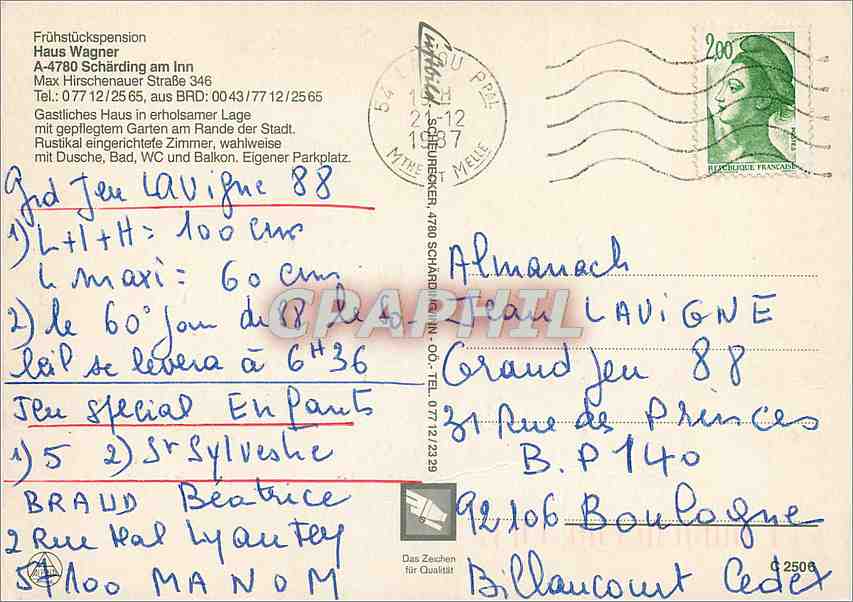 Frühstückspension
Haus Wagner
A-4780 Schärding am Inn
Max Hirschenauer Straße 346
Tel.: 0 77 12 / 25 65, aus BRD: 00 43 / 77 12 / 25 65
Gastliches Haus in erholsamer Lage
mit gepflegtem Garten am Rande der Stadt.
Rustikal eingerichtete Zimmer, wahlweise
mit Dusche, Bad, WC und Balkon. Eigener Parkplatz.
Grd Jeu LAVIGNE 88
1) L+l+H = 100 cms
L maxi = 60 cms
2) le 60° jour du 88 le so-
leil se levera à 6H36
Jeu special Enfants
1) 5 2) St Sylvestre
BRAUD Béatrice
2 Rue Mal Lyautey
57100 MANOM
Luftbild
SCHEURECKER, 4780 SCHÄRDING/INN - OÖ. - TEL. 0 77 12 / 23 29
54 PPAL
19H
21-12
1987
MTHE ET MELLE
2,00
POSTES
REPUBLIQUE FRANÇAISE
CPAPHIL
Almanach
Jean LAVIGNE
Grand Jeu 88
31 Rue des Princes
B.P 140
92106 Boulogne
Billancourt Cedex
Das Zeichen
für Qualität
C 2506